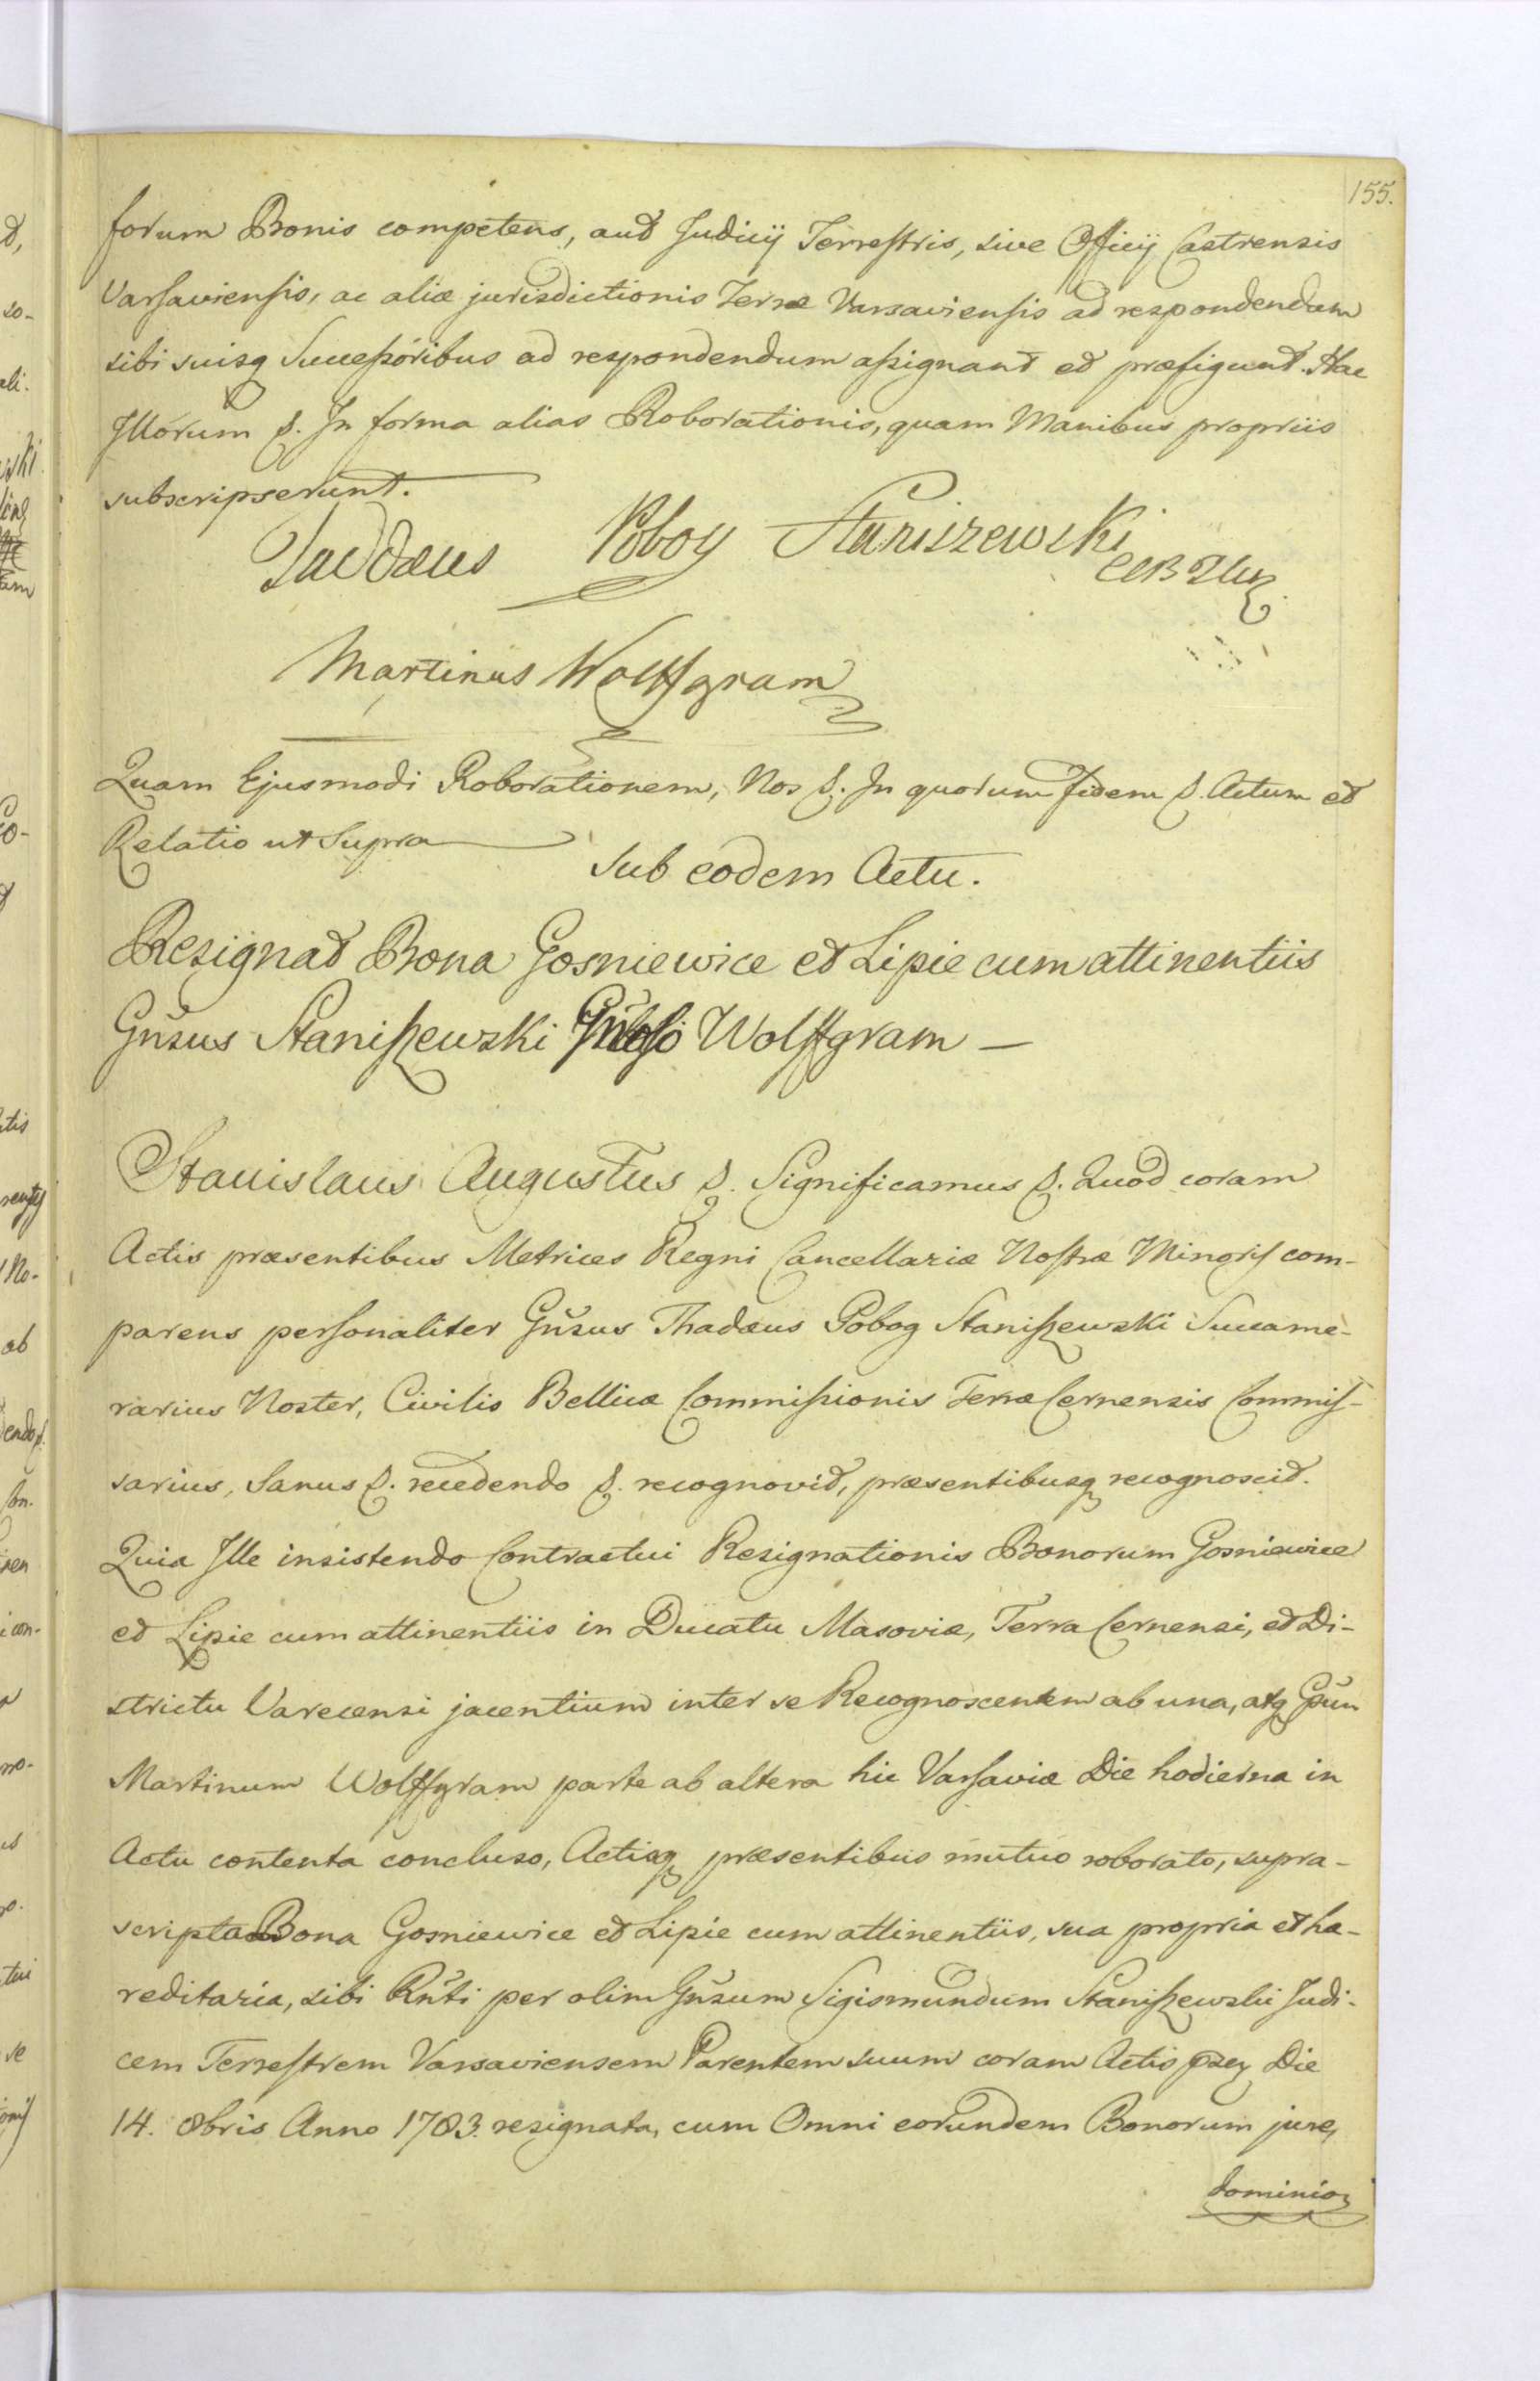 155.
forum Bonis competens, aut Judicij Terrestris, sive Officij Castrensis
Varsaviensis, ac aliæ jurisdictionis Terræ Varsaviensis ad respondendum
sibi suisq Successoribus ad respondendum assignant et præfigunt. Hac
Illorum p. In forma alias Roborationis, quam Manibus propriis
subscripserunt.
Taddæus Pobog Staniszewski
Martinus Wolffgram
Quam Ejusmodi Roborationem, Nos p. In quorum fidem p. Actum et
Relatio ut Supra
Sub eodem Actu.
Resignat Bona Gosniewice et Lipie cum attinentiis
Gnsus Staniszewski Wolffgram —
Stanislaus Augustus p. Significamus p. Quod coram
Actis præsentibus Metrices Regni Cancellariæ Nostræ Minoris com-
parens personaliter Gnsus Thadæus Pobog Staniszewski Succame-
rarius Noster, Civilis Bellicæ Commissionis Terræ Cernensis Commis-
sarius, Sanus p. recedendo p. recognovit, præsentibusq recognoscit.
Quia Ille insistendo Contractui Resignationis Bonorum Gosniewice
et Lipie cum attinentiis in Ducatu Masoviæ, Terra Cernensi, et Di-
strictu Varecensi jacentium inter se Recognoscentem ab una, atq Gsum
Martinum Wolffgram parte ab altera hic Varsaviæ Die hodierna in
Actu contenta concluso, Actisq præsentibus mutuo roborato, supra-
scripta Bona Gosniewice et Lipie cum attinentiis, sua propria et hæ-
reditaria, sibi Rnti per olim Gnsum Sigismundum Staniszewski Judi-
cem Terrestrem Varsaviensem Parentem suum coram Actis Die
14. 8bris Anno 1783. resignata, cum Omni eorundem Bonorum jure,
dominio,